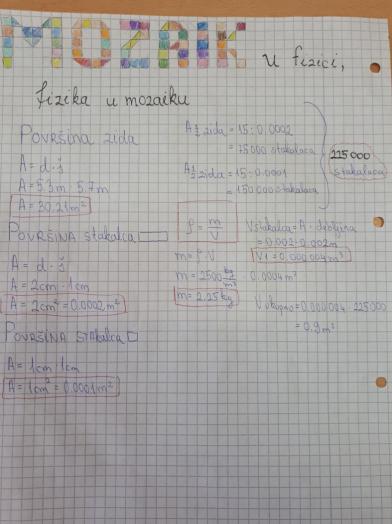 MOZAIK u fizici,
fizika u mozaiku
POVRŠINA zida
A = d · š
A = 5.3m · 5.7m
A = 30.21m²
POVRŠINA stakalca
A = d · š
A = 2cm · 1cm
A = 2cm² = 0.0002m²
POVRŠINA stakalca
A = 1cm · 1cm
A = 1cm² = 0.0001m²
A½ zida = 15 : 0.0002
= 75000 stakalaca
A½ zida = 15 : 0.0001
= 150000 stakalaca
225000
stakalaca
ρ = m/V
m = ρ · V
m = 2500 kg/m³ · 0.0004m³
m = 2.25kg
V stakalca = A · debljina
= 0.002 · 0.002m
V1 = 0.000004m³
V ukupno = 0.000004 · 225000
= 0.9m³